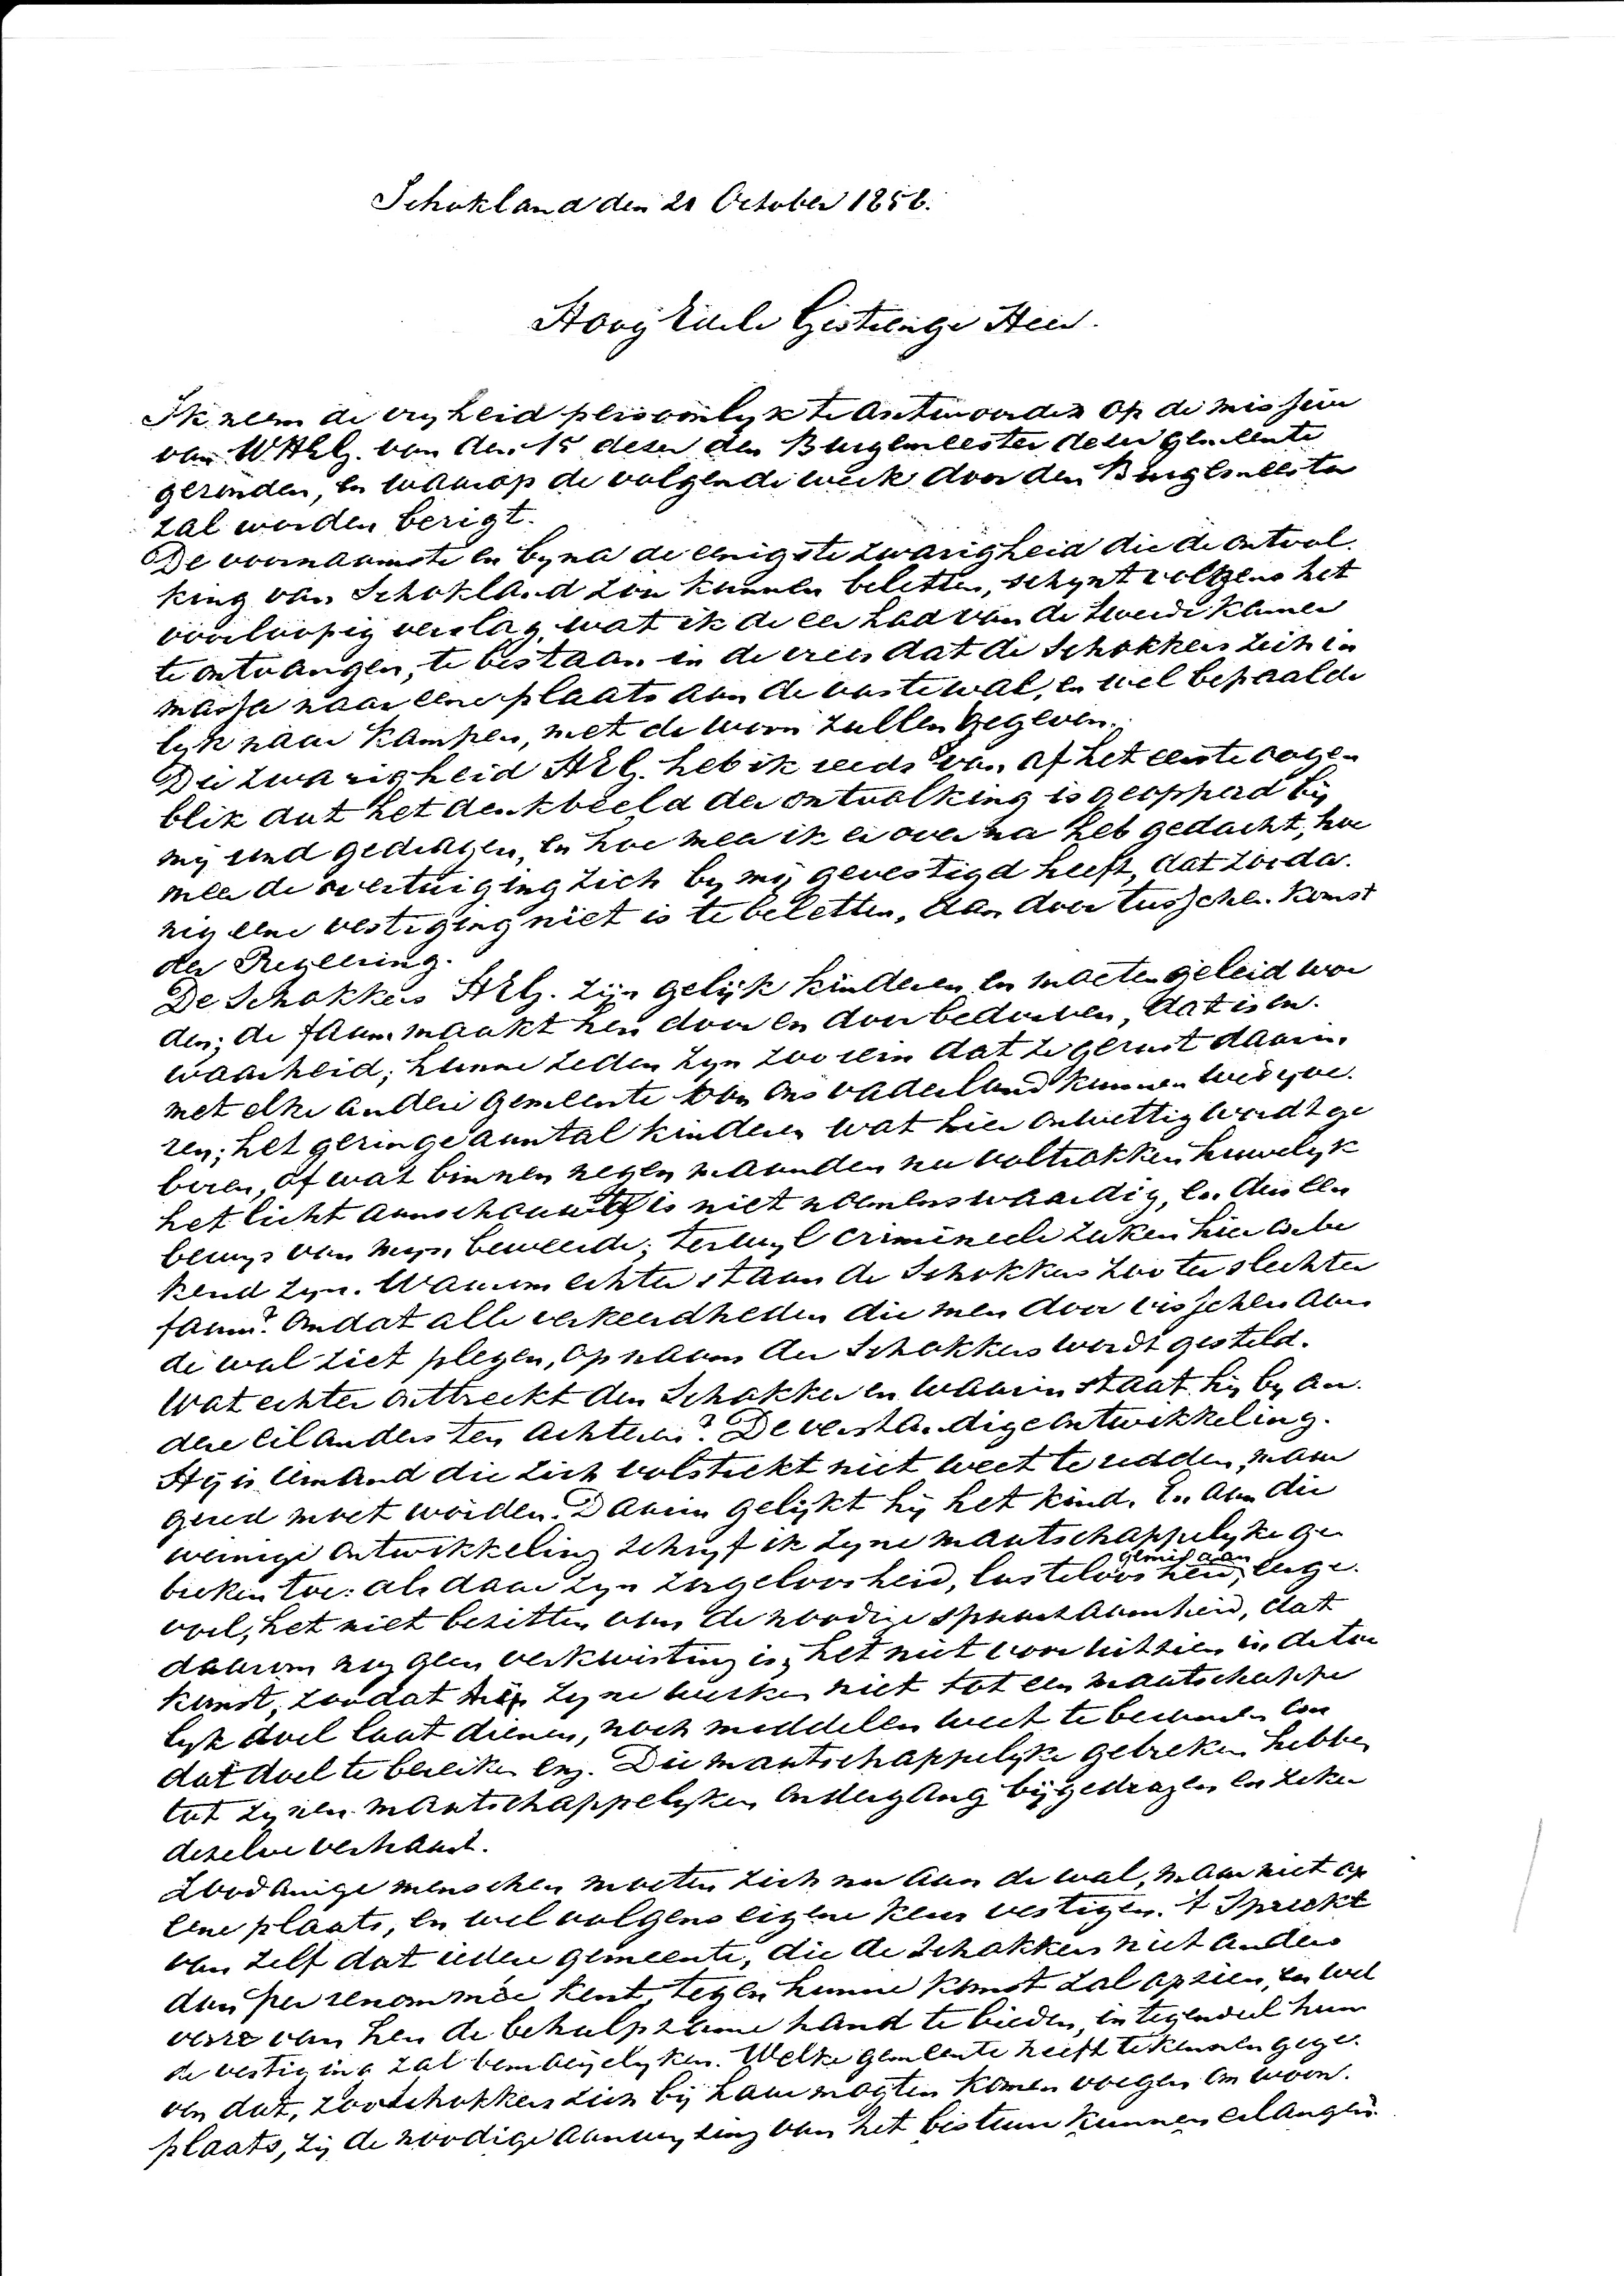 Schokland den 21 October 1858.
Hoog Edele Gestrenge Heer.
Ik neem de vryheid persoonlyk te antwoorden op de missive
van WHEG. van den 15 dezer den Burgemeester dezer gemeente
gezonden, en waarop de volgende week door den Burgemeester
zal worden berigt.
De voornaamste en byna de eenigste zwarigheid die de ontvol-
king van Schokland zou kunnen beletten, schynt volgens het
voorloopig verslag, wat ik de eer had van de Tweede Kamer
te ontvangen, te bestaan in de vrees dat de Schokkers zich in
massa naar eene plaats aan de vaste wal, en wel bepaalde
lyk naar Kampen, met de woon zullen begeven.
Die zwarigheid HEG. heb ik reeds van af het eerste oogen
blik dat het denkbeeld der ontvolking is geopperd bij
mij rond gedragen, en hoe meer ik er over na heb gedacht, hoe
meer de overtuiging zich by mij gevestigd heeft, dat zooda-
nig eene vestiging niet is te beletten, dan door tusschen komst
der Regeering.
De Schokkers HEG. zijn gelijk kinderen en moeten geleid wor
den; de faam maakt hen door en door bedorven, dat is on-
waarheid; hunne zeden zyn zoo rein dat ze gerust daarin
met elke andere gemeente van ons vaderland kunnen wedyve-
ren; het geringe aantal kinderen wat hier onwettig wordt ge
boren, of wat binnen negen maanden na voltrokken huwelyk
het licht aanschouwt is niet noemenswaardig, en dus een
bewys van myn beweerde; terwyl crimineele zaken hier onbe
kend zyn. Waarom echter staan de Schokkers zoo ter slechter
faam? Omdat alle verkeerdheden die men door visschers aan
de wal ziet plegen, op naam der Schokkers wordt gesteld.
Wat echter onttrekt den Schokker en waarin staat hij by an-
dere eilanders ten achteren? De verstandige ontwikkeling.
Hij is iemand die zich volstrekt niet weet te redden, maar
gered moet worden. Daarin gelijkt hij het kind. En aan die
weinige ontwikkeling schryf ik zyne maatschappelyke ge-
breken toe: als daar zyn zorgeloosheid, lusteloosheid, gemis aan eerge-
voel, het niet bezitten van de noodige spaarzaamheid, dat
daarom nog geen verkwisting is, het niet vooruitzien in de toe
komst, zoodat hij zyne werken niet tot een maatschappe
lyk doel laat dienen, noch middelen weet te beramen om
dat doel te bereiken enz. Die maatschappelyke gebreken hebben
tot zynen maatschappelyken ondergang bijgedragen en zeker
dezelve verhaast.
Zoodanige menschen moeten zich nu aan de wal, maar niet op
eene plaats, en wel volgens eigene keus vestigen. 't Spreekt
van zelf dat iedere gemeente, die de Schokkers niet anders
dan per renommée kent, tegen hunne komst zal opzien, en wel
verre van hen de behulpzame hand te bieden, in tegendeel hun
de vestiging zal bemoeijelyken. Welke gemeente heeft te kennen gege-
ven dat, zoo Schokkers zich bij haar mogten komen voegen om woon-
plaats, zij de noodige aanwyzing van het bestuur kunnen erlangen.